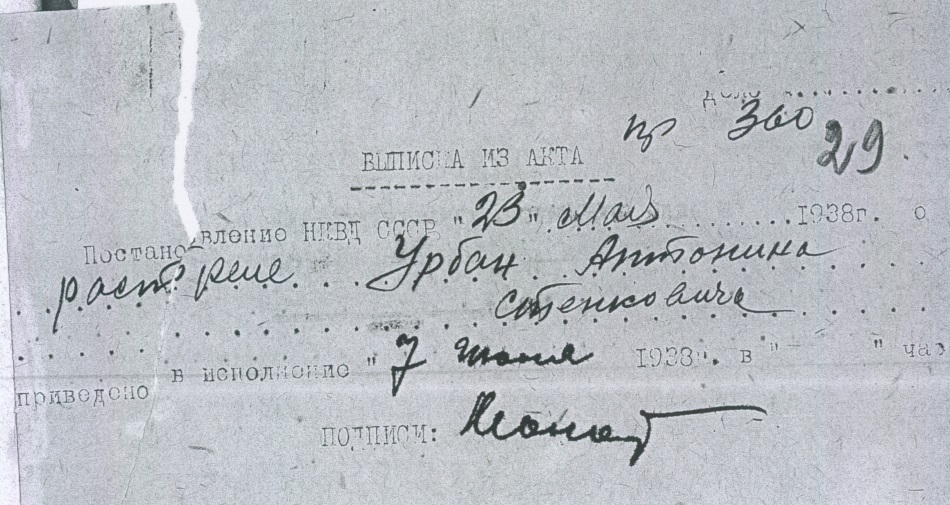 дело
пр 360
29.
ВЫПИСКА ИЗ АКТА
Постановление НКВД СССР "23" Мая 1938г. о
растреле Урбан Антонина
Стенковича
приведено в исполнение "7 июня 1938г. в " " час
ПОДПИСИ: